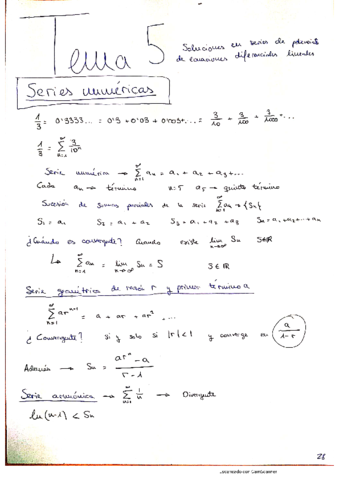 Tema 5
Soluciones en series de potencias
de ecuaciones diferenciales lineales
Series numéricas
1/3 = 0'3333... = 0'3 + 0'03 + 0'003+... = 3/10 + 3/100 + 3/1000 + ...
1/3 = ∑_{n=1}^{∞} 3/10^n
Serie numérica → ∑_{n=1}^{∞} a_n = a_1 + a_2 + a_3 + ...
Cada a_n → término n=5 a_5 → quinto término
Sucesión de sumas parciales de la serie ∑_{n=1}^{∞} a_n → {S_n}
S_1 = a_1 S_2 = a_1 + a_2 S_3 = a_1 + a_2 + a_3 S_n = a_1+a_2+...+a_n
¿Cuándo es convergente? Cuando existe lim_{n→∞} S_n S∈ℝ
↳ ∑_{n=1}^{∞} a_n = lim_{n→∞} S_n = S S∈ℝ
Serie geométrica de razón r y primer término a
∑_{n=1}^{∞} ar^{n-1} = a + ar + ar² + ...
¿Convergente? Si y solo si |r|<1 y converge en a/(1-r)
Además → S_n = (ar^n - a)/(r - 1)
Serie armónica → ∑_{n=1}^{∞} 1/n → Divergente
ln(n+1) < S_n
Escaneado con CamScanner